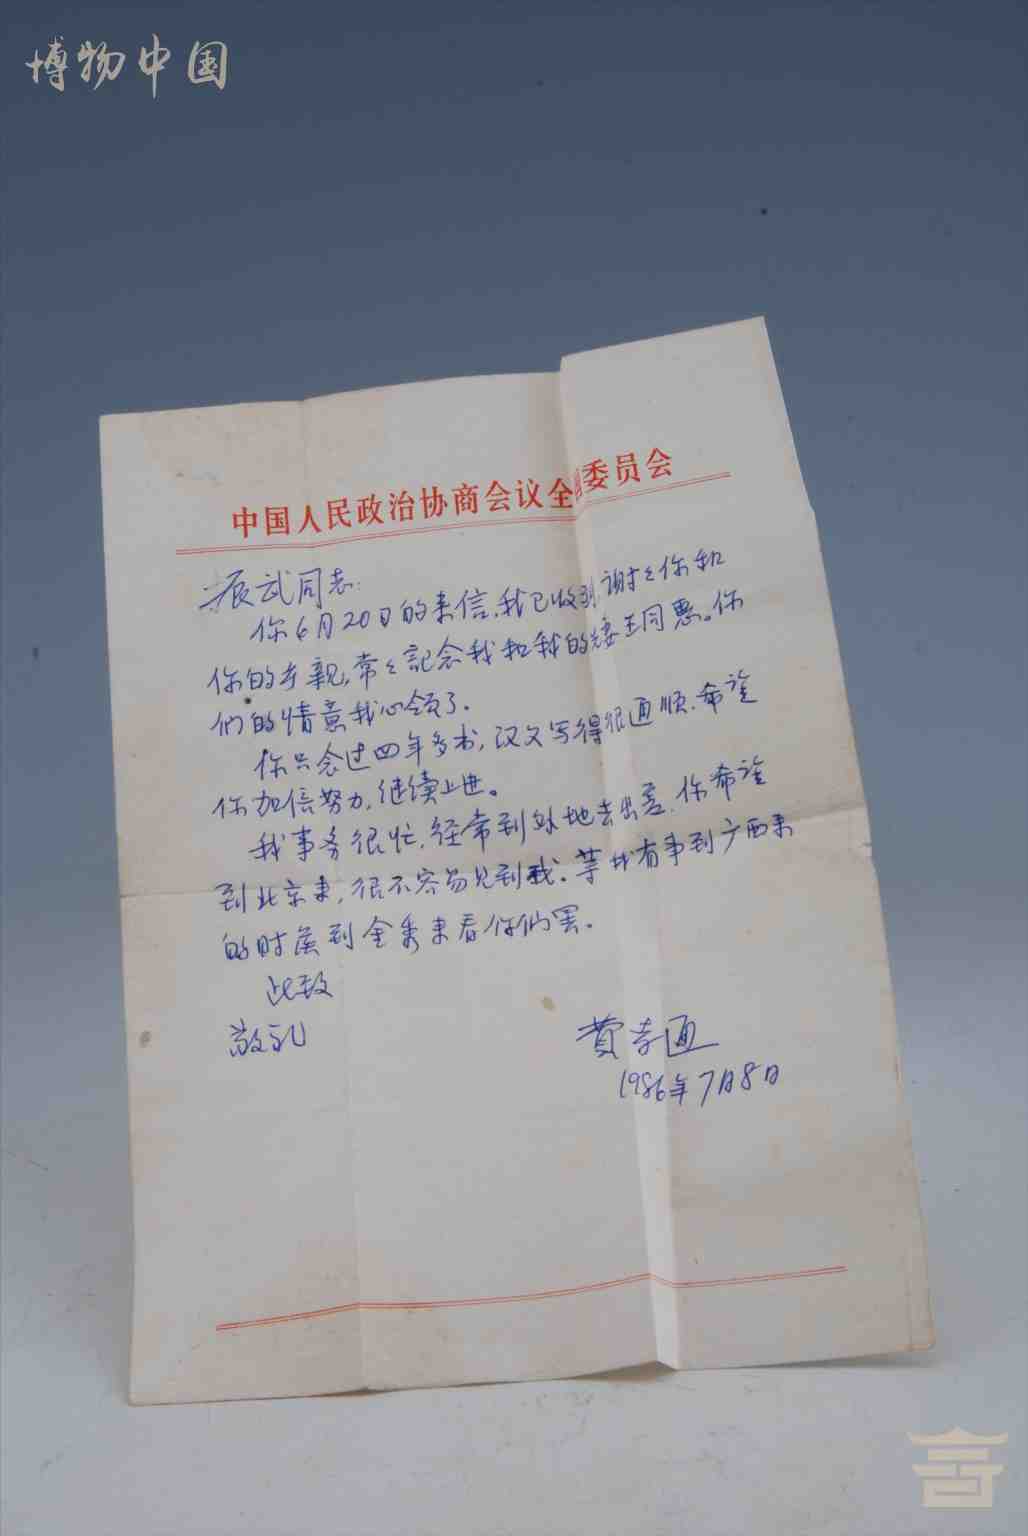 博物中国
中国人民政治协商会议全国委员会
振武同志:
你6月20日的来信,我已收到,谢々你和
你的母亲,常々記念我和我的妻王同惠。你
们的情意我心领了。
你只念过四年多书,汉文写得很通顺,希望
你加倍努力,继续上进。
我事务很忙,经常到外地去出差,你希望
到北京来,很不容易见到我。等我有事到广西来
的时候到金秀来看你们罢。
此致
敬礼
费孝通
1986年7月8日